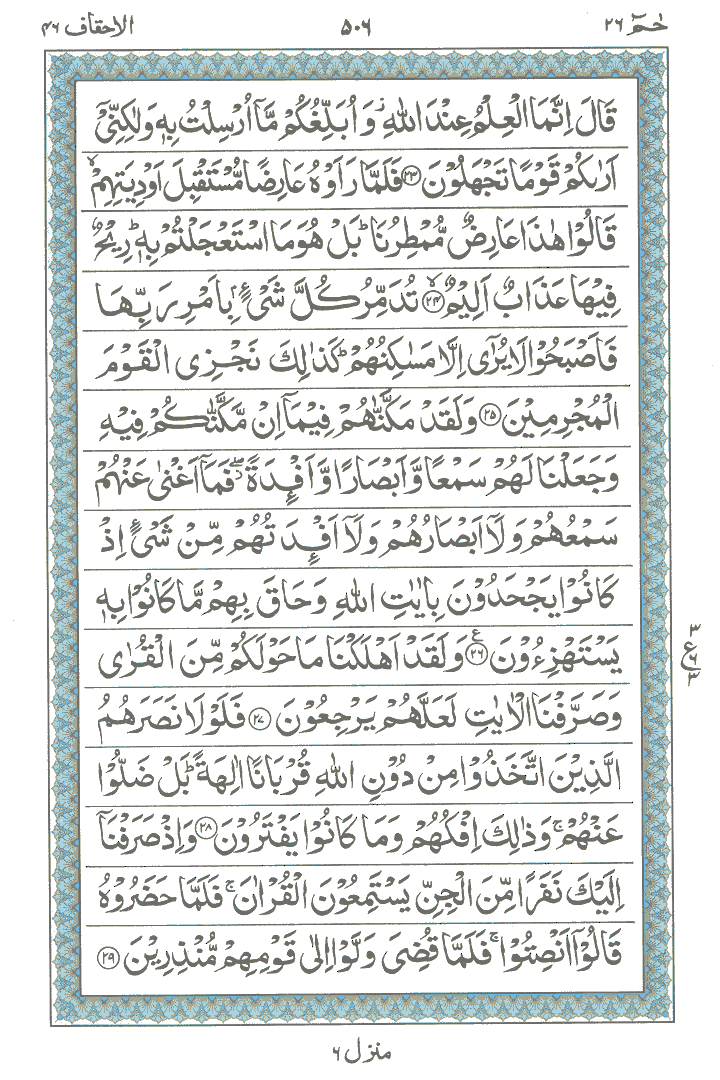 حٰمٓ ٢٦ ٥٠٦ الاحقاف ٤٦
قَالَ اِنَّمَا الْعِلْمُ عِنْدَ اللّٰهِ ۖ وَاُبَلِّغُكُمْ مَّاۤ اُرْسِلْتُ بِهٖ وَلٰكِنِّیْۤ
اَرٰىكُمْ قَوْمًا تَجْهَلُوْنَ ﴿٢٣﴾ فَلَمَّا رَاَوْهُ عَارِضًا مُّسْتَقْبِلَ اَوْدِیَتِهِمْ ۙ
قَالُوْا هٰذَا عَارِضٌ مُّمْطِرُنَا ؕ بَلْ هُوَ مَا اسْتَعْجَلْتُمْ بِهٖ ؕ رِیْحٌ
فِیْهَا عَذَابٌ اَلِیْمٌ ۙ﴿٢٤﴾ تُدَمِّرُ كُلَّ شَیْءٍۭ بِاَمْرِ رَبِّهَا
فَاَصْبَحُوْا لَا یُرٰۤی اِلَّا مَسٰكِنُهُمْ ؕ كَذٰلِكَ نَجْزِی الْقَوْمَ
الْمُجْرِمِیْنَ ﴿٢٥﴾ وَلَقَدْ مَكَّنّٰهُمْ فِیْمَاۤ اِنْ مَّكَّنّٰكُمْ فِیْهِ
وَجَعَلْنَا لَهُمْ سَمْعًا وَّاَبْصَارًا وَّاَفْـِٕدَةً ۖ فَمَاۤ اَغْنٰی عَنْهُمْ
سَمْعُهُمْ وَلَاۤ اَبْصَارُهُمْ وَلَاۤ اَفْـِٕدَتُهُمْ مِّنْ شَیْءٍ اِذْ
كَانُوْا یَجْحَدُوْنَ بِاٰیٰتِ اللّٰهِ وَحَاقَ بِهِمْ مَّا كَانُوْا بِهٖ
یَسْتَهْزِءُوْنَ ﴿٢٦﴾ع وَلَقَدْ اَهْلَكْنَا مَا حَوْلَكُمْ مِّنَ الْقُرٰی
٣ ع ٦ ٣
وَصَرَّفْنَا الْاٰیٰتِ لَعَلَّهُمْ یَرْجِعُوْنَ ﴿٢٧﴾ فَلَوْلَا نَصَرَهُمُ
الَّذِیْنَ اتَّخَذُوْا مِنْ دُوْنِ اللّٰهِ قُرْبَانًا اٰلِهَةً ؕ بَلْ ضَلُّوْا
عَنْهُمْ ۚ وَذٰلِكَ اِفْكُهُمْ وَمَا كَانُوْا یَفْتَرُوْنَ ﴿٢٨﴾ وَاِذْ صَرَفْنَاۤ
اِلَیْكَ نَفَرًا مِّنَ الْجِنِّ یَسْتَمِعُوْنَ الْقُرْاٰنَ ۚ فَلَمَّا حَضَرُوْهُ
قَالُوْۤا اَنْصِتُوْا ۚ فَلَمَّا قُضِیَ وَلَّوْا اِلٰی قَوْمِهِمْ مُّنْذِرِیْنَ ﴿٢٩﴾
منزل ٦